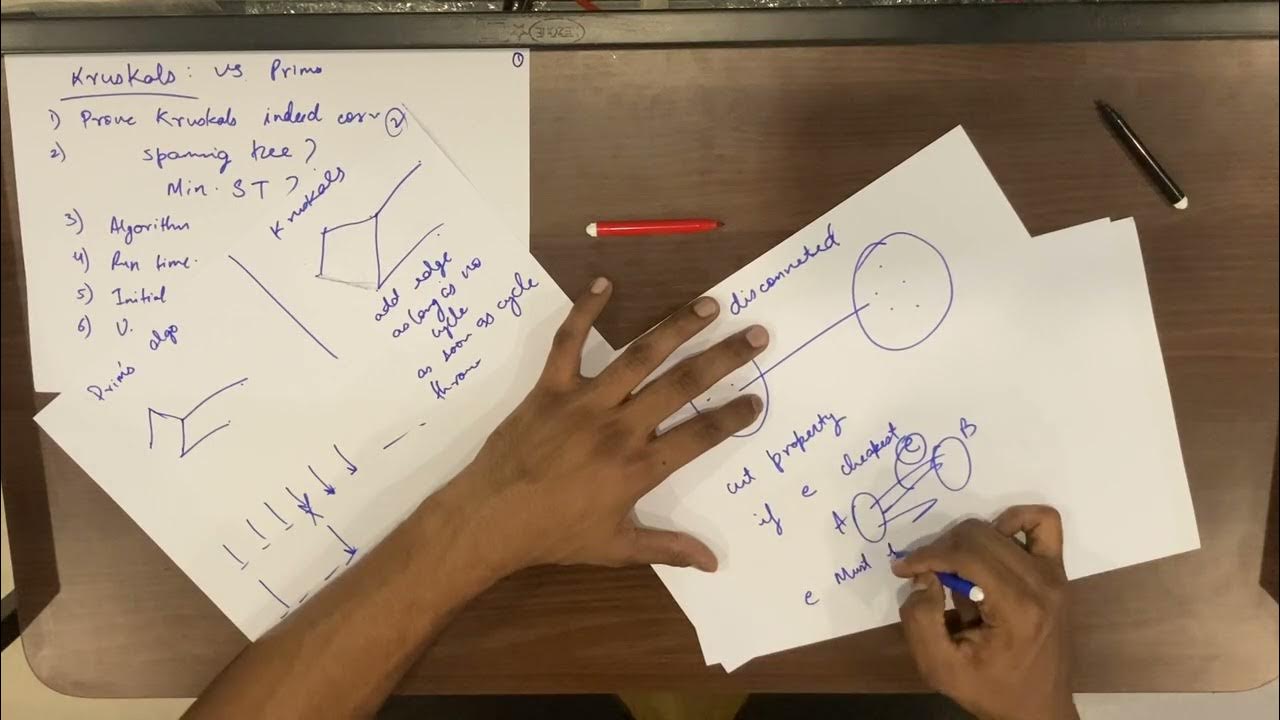 Kruskals: vs Prims
1
1) Prove Kruskals indeed corr
2
2) spannig tree?
Min. ST?
3) Algorithm
4) Run time.
5) Initial
6) U.
Kruskals
add edge
as long as no
cycle
as soon as cycle
throw
Prim's algo
disconneted
cut property
if e cheapest
e
A
B
e Must